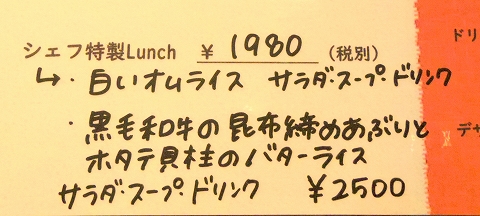 シェフ特製Lunch ￥ 1980 (税別)
↳・白いオムライス サラダ・スープ・ドリンク
・黒毛和牛の昆布締めあぶりと
ホタテ貝柱のバターライス
サラダ・スープ・ドリンク ￥2500
ドリ
デザ